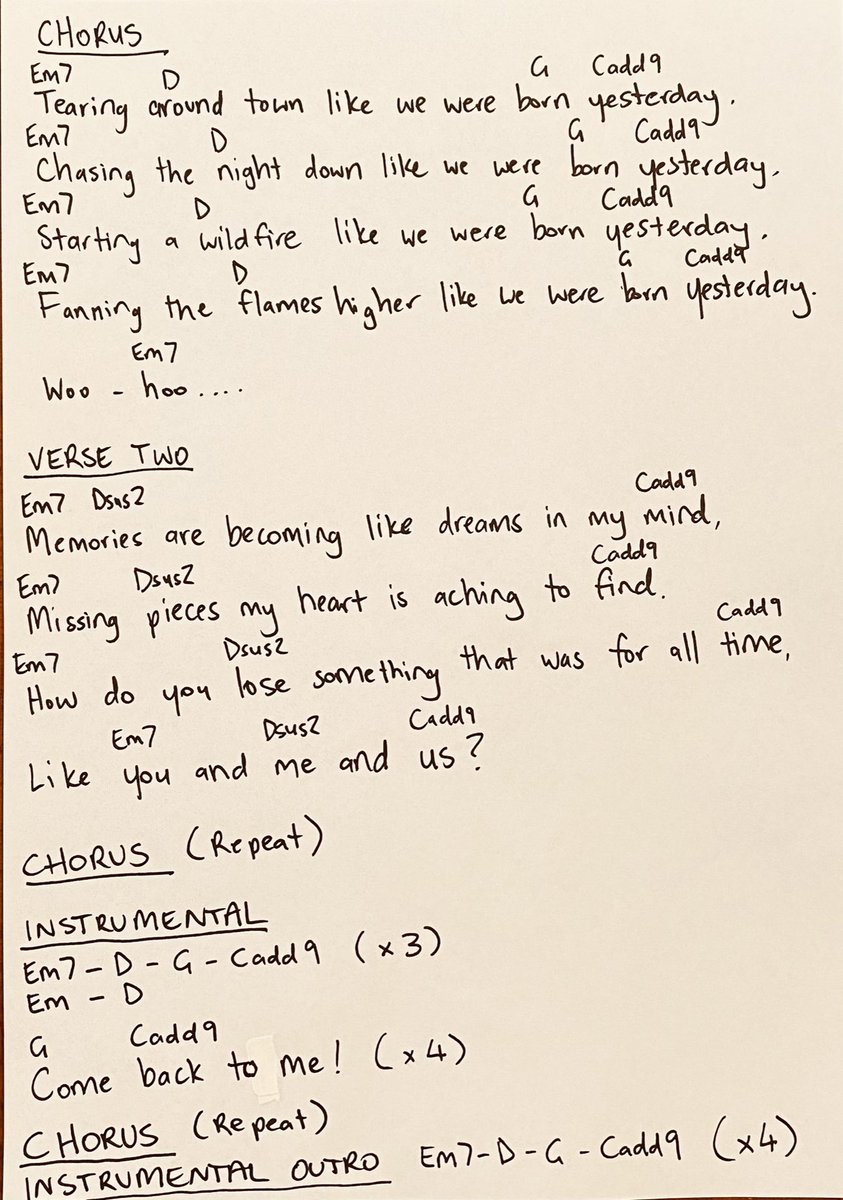 CHORUS
Em7 D G Cadd9
Tearing around town like we were born yesterday.
Em7 D G Cadd9
Chasing the night down like we were born yesterday.
Em7 D G Cadd9
Starting a wildfire like we were born yesterday.
Em7 D G Cadd9
Fanning the flames higher like we were born yesterday.
Em7
Woo - hoo....
VERSE TWO
Em7 Dsus2 Cadd9
Memories are becoming like dreams in my mind,
Em7 Dsus2 Cadd9
Missing pieces my heart is aching to find.
Em7 Dsus2 Cadd9
How do you lose something that was for all time,
Em7 Dsus2 Cadd9
Like you and me and us?
CHORUS (Repeat)
INSTRUMENTAL
Em7 - D - G - Cadd9 (x3)
Em - D
G Cadd9
Come back to me! (x4)
CHORUS (Repeat)
INSTRUMENTAL OUTRO Em7 - D - G - Cadd9 (x4)